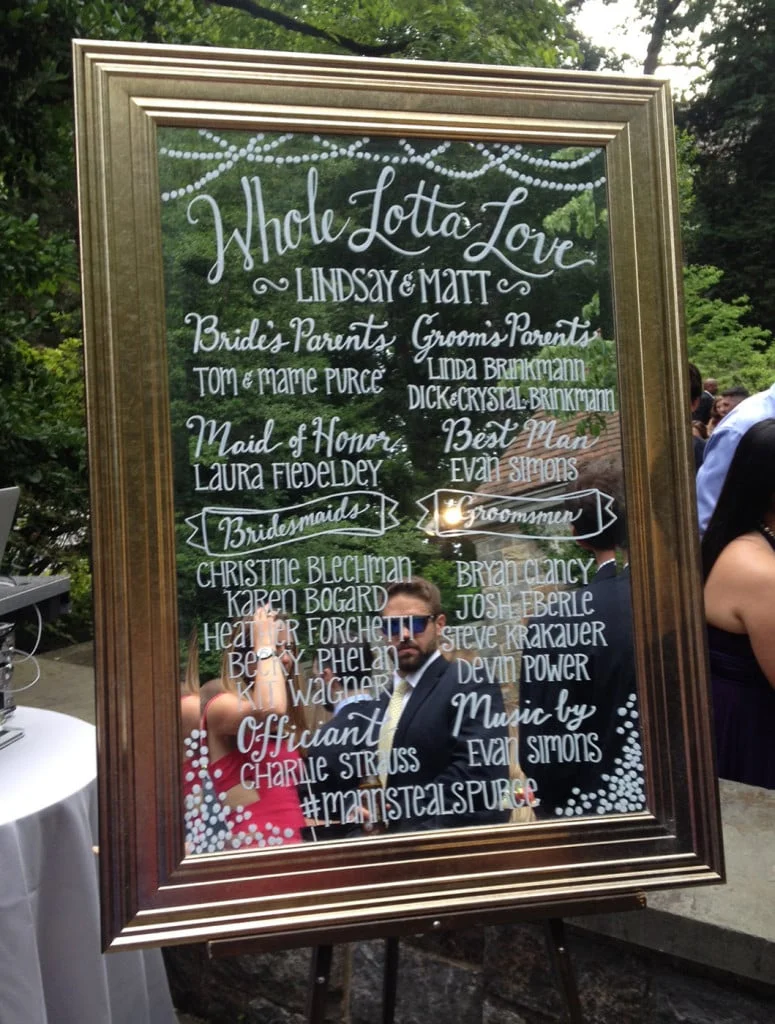 Whole Lotta Love
LINDSAY & MATT
Bride's Parents
TOM & MAME PURCE
Groom's Parents
LINDA BRINKMANN
DICK & CRYSTAL BRINKMANN
Maid of Honor
LAURA FIEDELDEY
Best Man
EVAN SIMONS
Bridesmaids
CHRISTINE BLECHMAN
KAREN BOGARD
HEATHER FORCHETTI
BECKY PHELAN
KIT WAGNER
Groomsmen
BRYAN CLANCY
JOSH EBERLE
STEVE KRAKAUER
DEVIN POWER
Officiant
CHARLIE STRAUSS
Music by
EVAN SIMONS